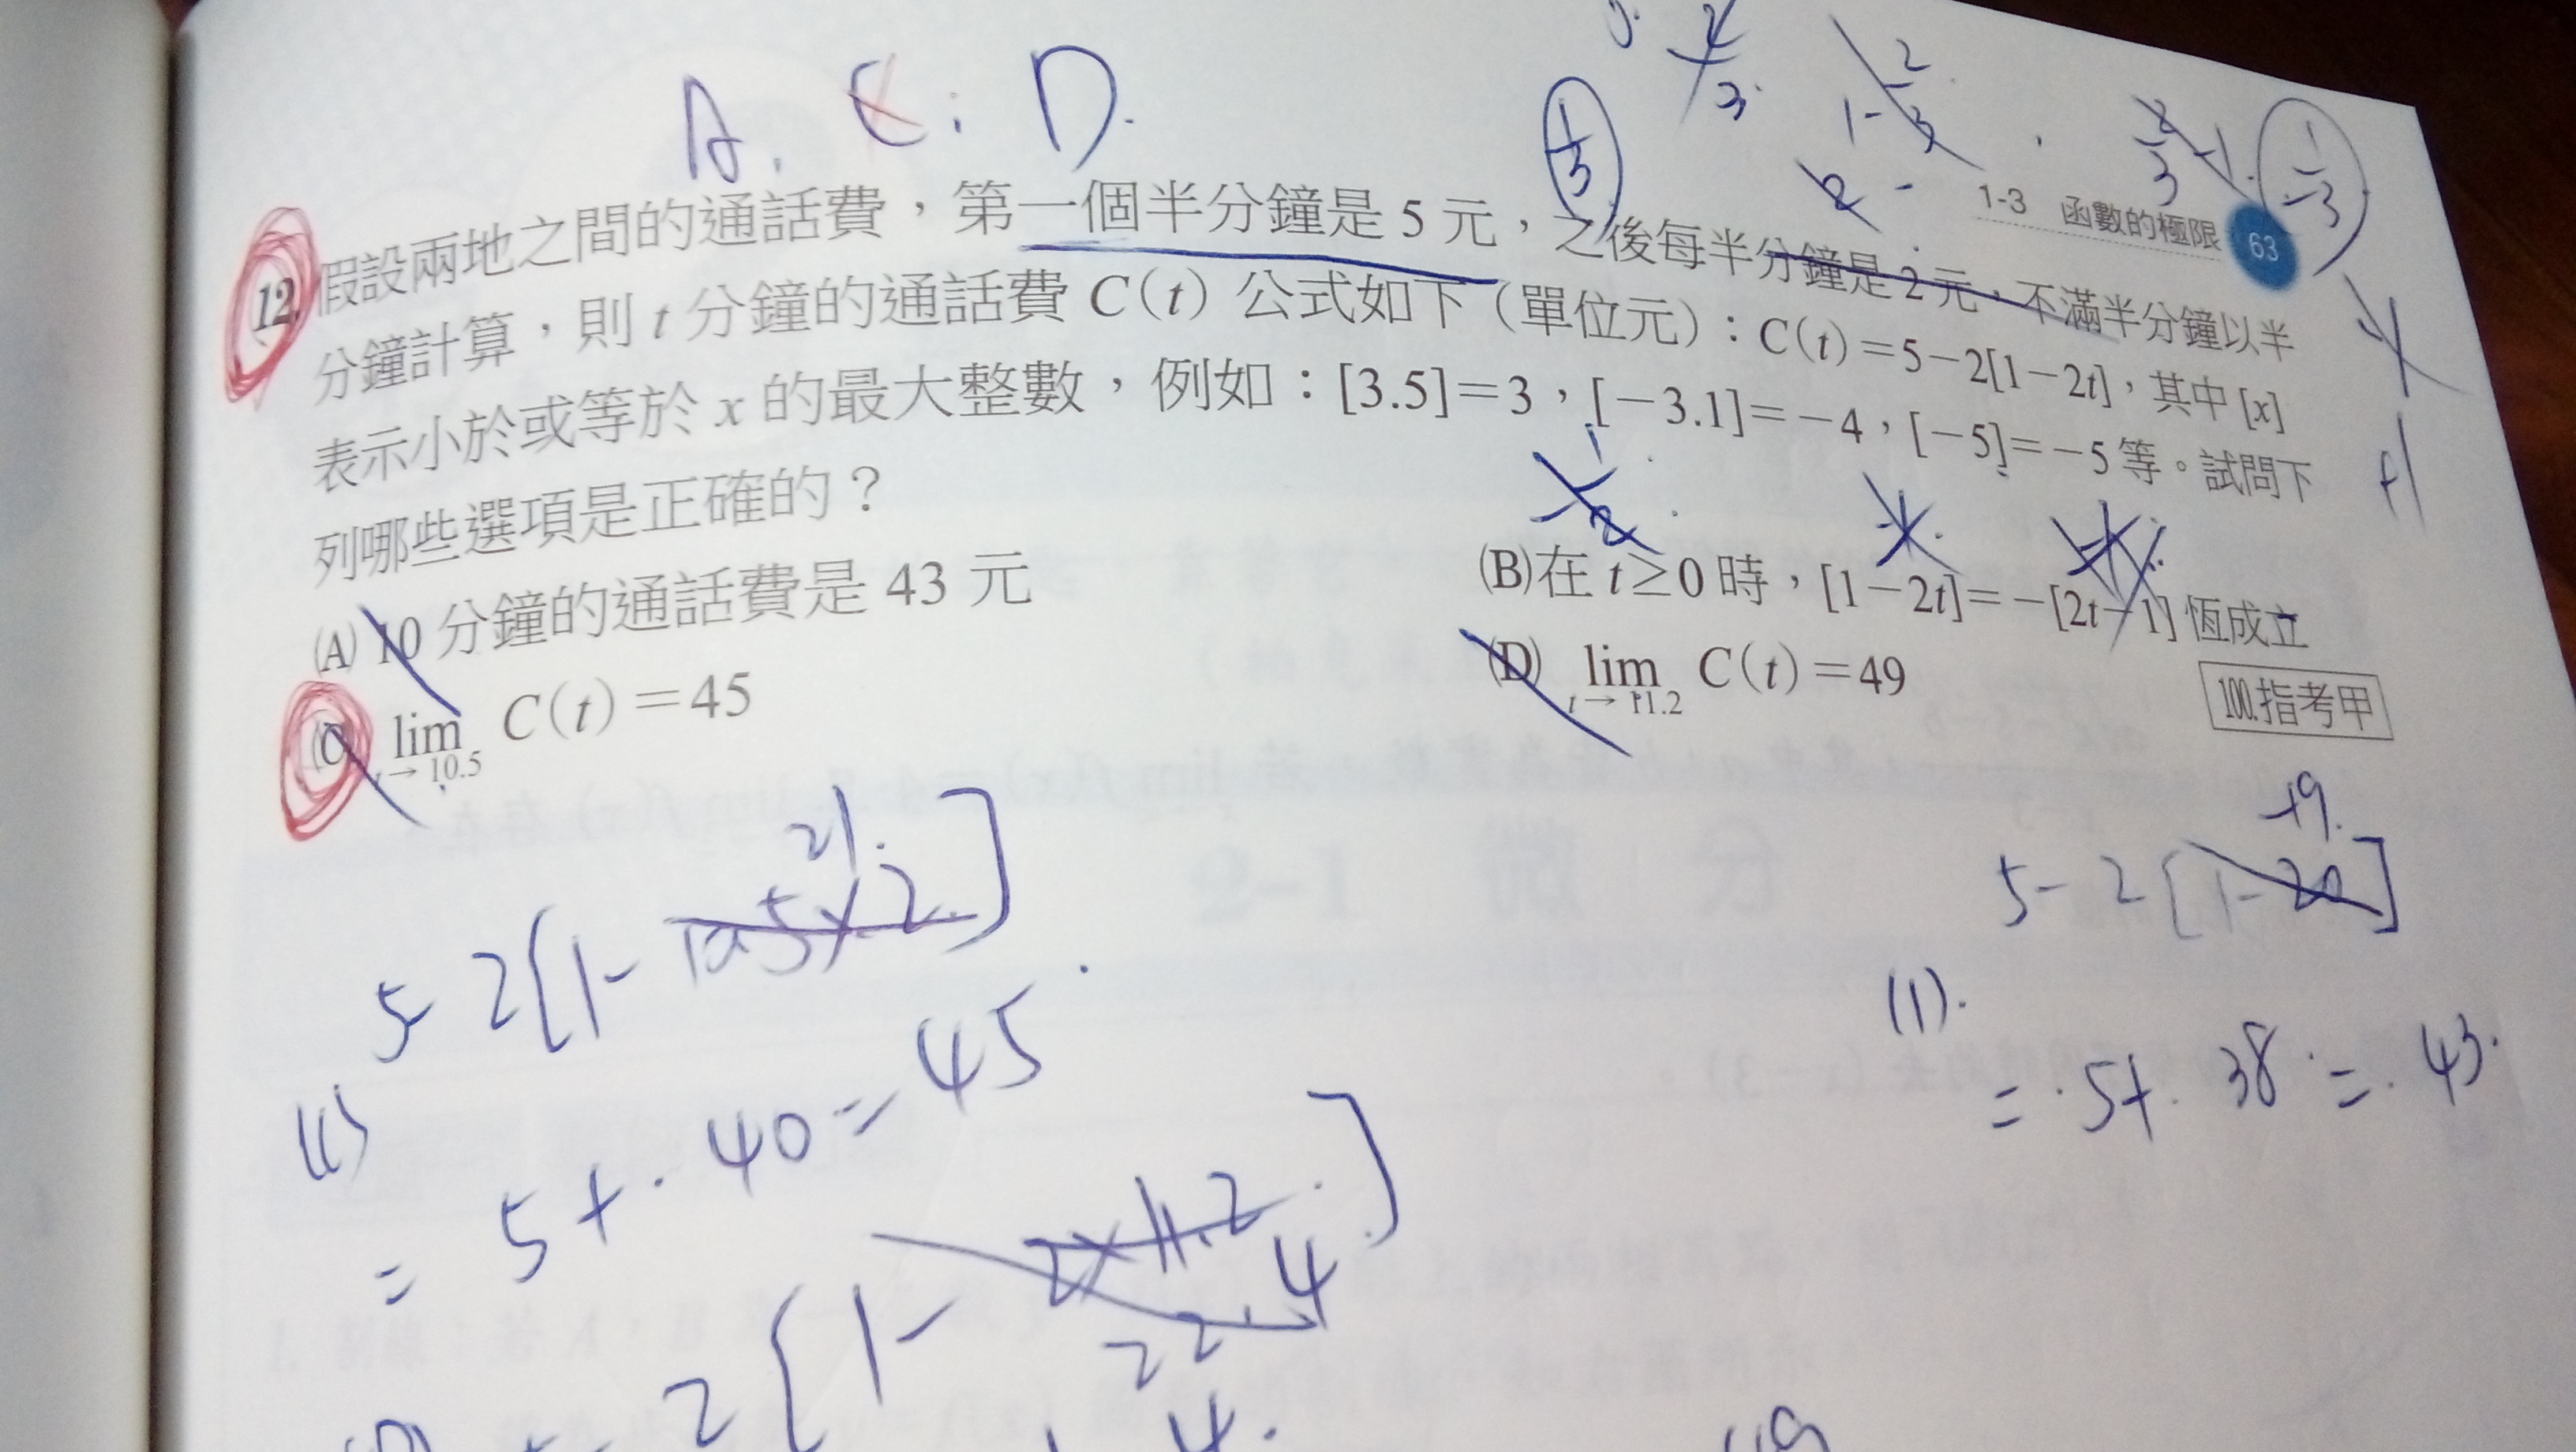 A. C. D.
1/3
1-3 函數的極限 63
12. 假設兩地之間的通話費，第一個半分鐘是 5 元，之後每半分鐘是 2 元，不滿半分鐘以半
分鐘計算，則 t 分鐘的通話費 C(t) 公式如下（單位元）：C(t)=5-2[1-2t]，其中 [x]
表示小於或等於 x 的最大整數，例如：[3.5]=3，[-3.1]=-4，[-5]=-5 等。試問下
列哪些選項是正確的？
(A) 10 分鐘的通話費是 43 元
(B) 在 t≥0 時，[1-2t]=-[2t-1] 恆成立
(C) lim t→10.5 C(t)=45
(D) lim t→11.2 C(t)=49
100.指考甲
21.
5-2[1-10.5×2]
= 5+40=45
-19.
5-2[1-20]
(1).
=5+38=43.
2[1-2×11.2]
22.4